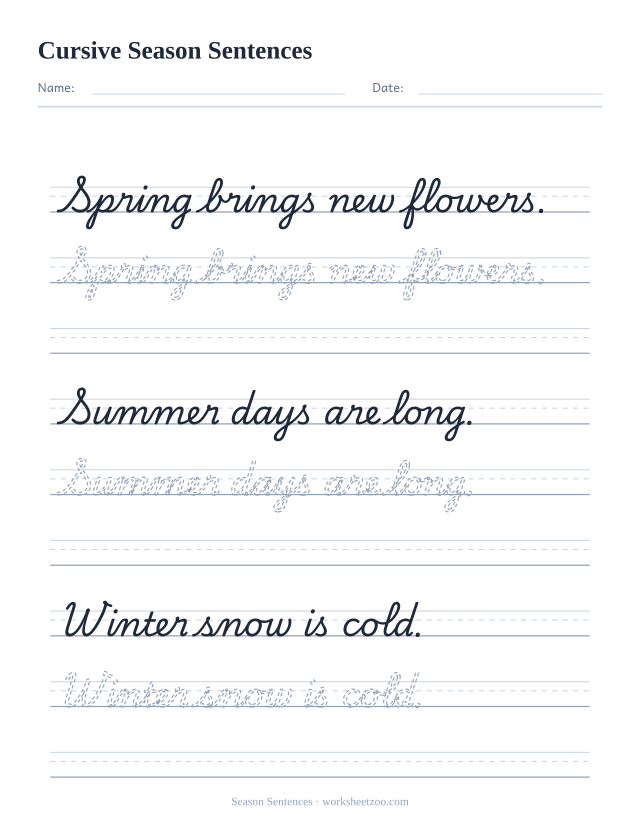 Cursive Season Sentences
Name: Date:
Spring brings new flowers.
Spring brings new flowers.
Summer days are long.
Summer days are long.
Winter snow is cold.
Winter snow is cold.
Season Sentences · worksheetzoo.com